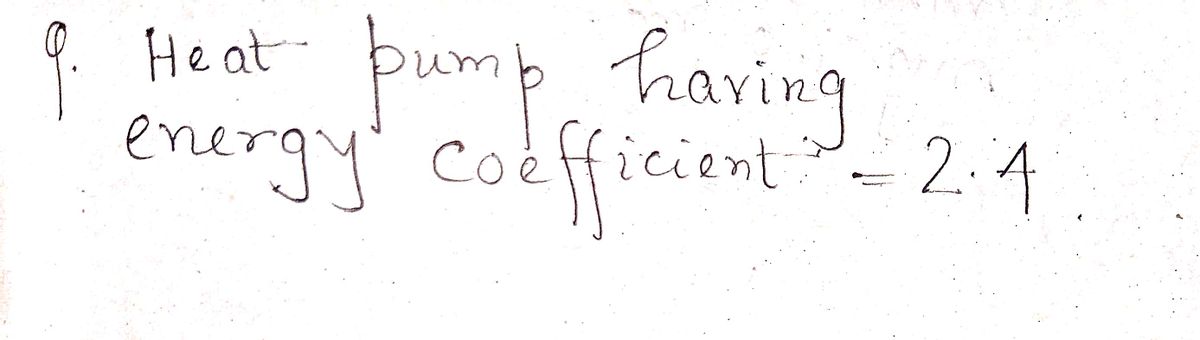 9. Heat pump having
energy coefficient = 2.4